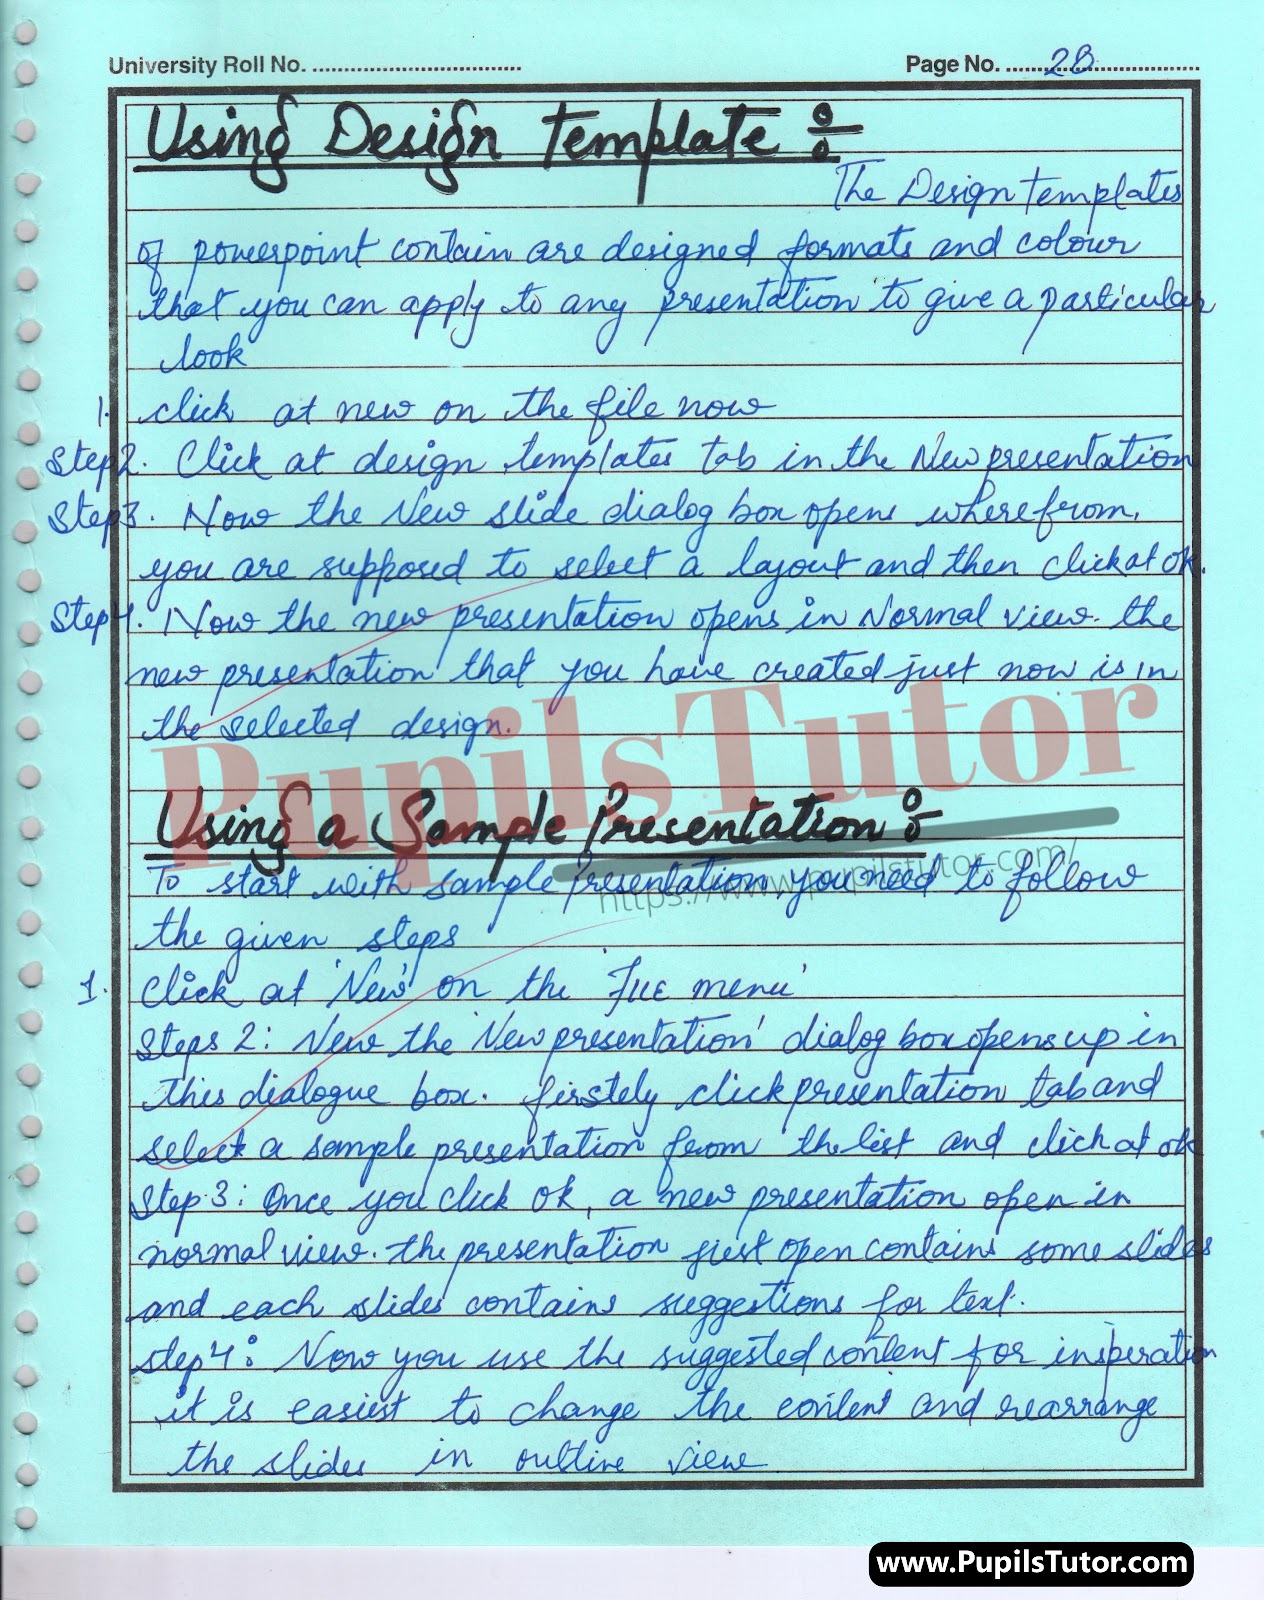 University Roll No. ................................
Page No. ....28....................
Using Design Template :-
The Design templates
of powerpoint contain are designed formats and colour
that you can apply to any presentation to give a particular
look
1. click at new on the file now
Step2. Click at design templates tab in the New presentation
Step3. Now the New slide dialog box opens where from,
you are supposed to select a layout and then click at ok.
Step4. Now the new presentation opens in Normal view. the
new presentation that you have created just now is in
the selected design.
PupilsTutor
Using a Sample Presentation :-
https://www.pupilstutor.com/
To start with sample presentation, you need to follow
the given steps
1. Click at 'New' on the 'File menu'
Steps 2: New the 'New presentation' dialog box opens up in
this dialogue box. firstely click presentation tab and
select a sample presentation from the list and click at ok
Step.3: Once you click ok, a new presentation open in
normal view. the presentation just open contains some slides
and each slides contains suggestions for text.
step4: Now you use the suggested content for insperation
it is easiest to change the content and rearrange
the slides in outline view
www.PupilsTutor.com